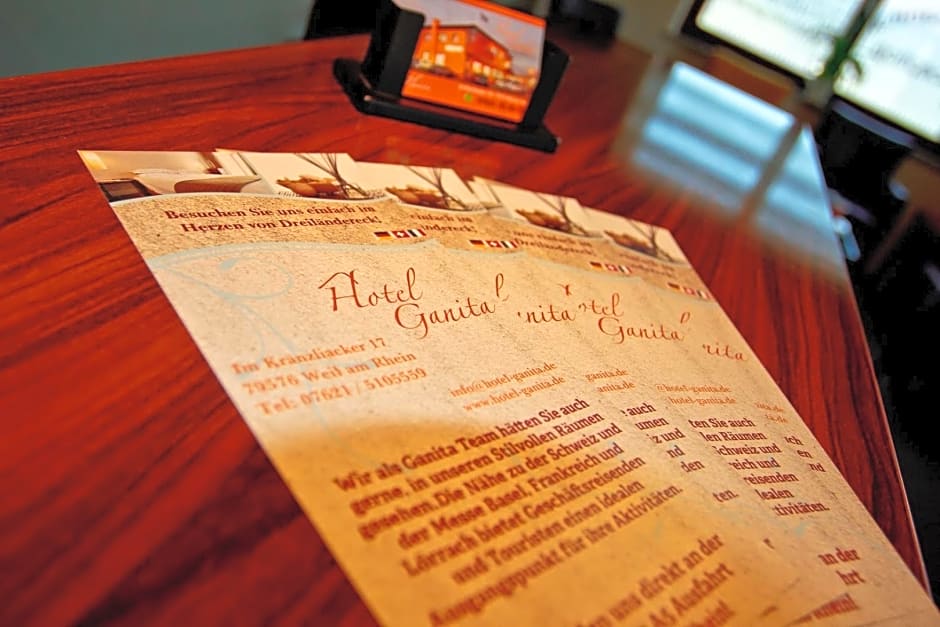 Besuchen Sie uns einfach im
Herzen von Dreiländereck!
Hotel
Ganital
Im Kränzliacker 17
79576 Weil am Rhein
Tel: 07621 / 5105559
info@hotel-ganita.de
www.hotel-ganita.de
Wir als Ganita Team hätten Sie auch
gerne, in unseren Stilvollen Räumen
gesehen. Die Nähe zu der Schweiz und
der Messe Basel, Frankreich und
Lörrach bietet Geschäftsreisenden
und Touristen einen Idealen
Ausgangspunkt für ihre Aktivitäten.
uns direkt an der
A5 Ausfahrt
einfach im
dereck!
einfach im
Dreiländereck!
nita
tel
Ganital
rita
ganita.de
anita.de
@hotel-ganita.de
hotel-ganita.de
auch
z und
den
ten.
ten Sie auch
len Räumen
chweiz und
reich und
reisenden
dealen
tivitäten.
ch
en
nd
an der
hrt